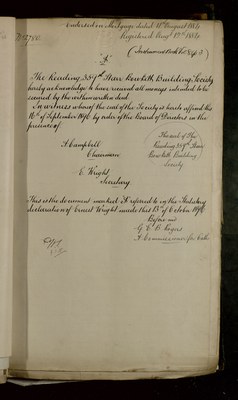 Endorsed on Mortgage dated 11th August 1886
Registered August 12th 1886
"A"
The Reading 559th Starr Bowkett Building Society
hereby acknowledge to have received all moneys intended to be
secured by the within written deed.
In witness whereof the seal of the Society is hereto affixed this
16th of September 1890 by order of the Board of Directors in the
presence of
A Campbell
Chairman
E. Wright
Secretary
The seal of The
Reading 559th Starr
Bowkett Building
Society
This is the document marked A referred to in the Statutory
declaration of Ernest Wright made this 13th of October 1890
Before me
G. E. B. Rogers
A Commissioner for Oaths